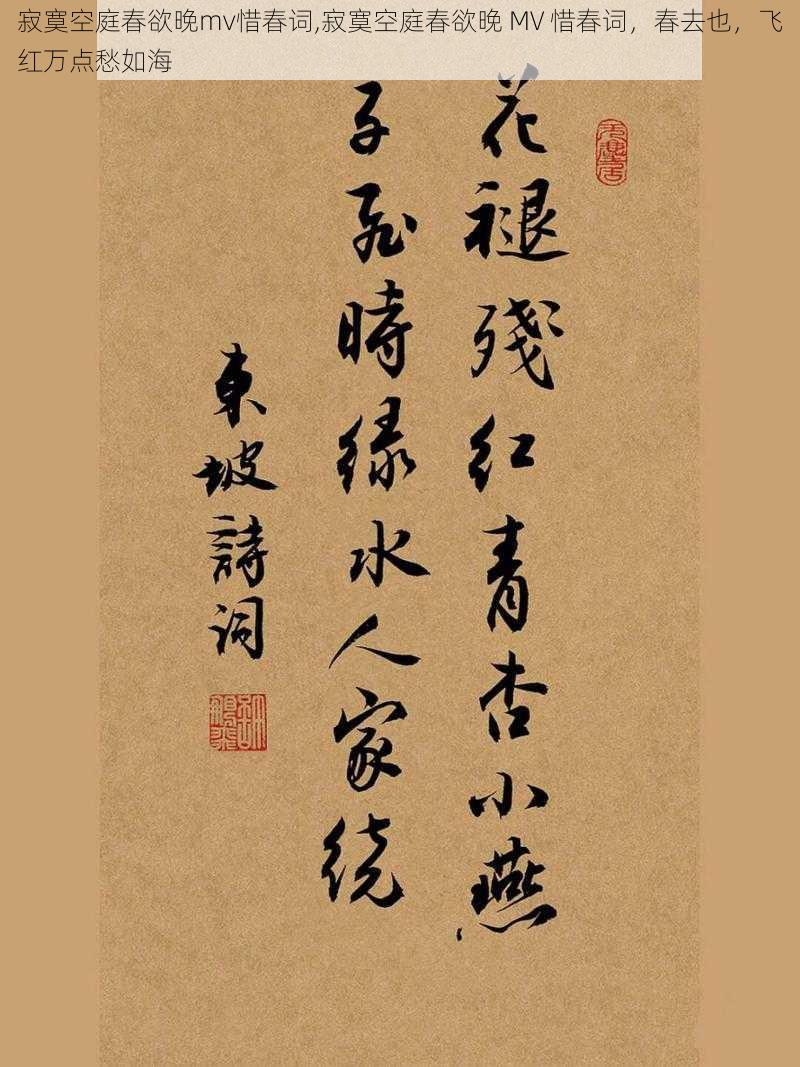 寂寞空庭春欲晚mv惜春词,寂寞空庭春欲晚 MV 惜春词，春去也，飞
红万点愁如海
花褪殘红青杏小燕
子飛時绿水人家绕
東坡詩词